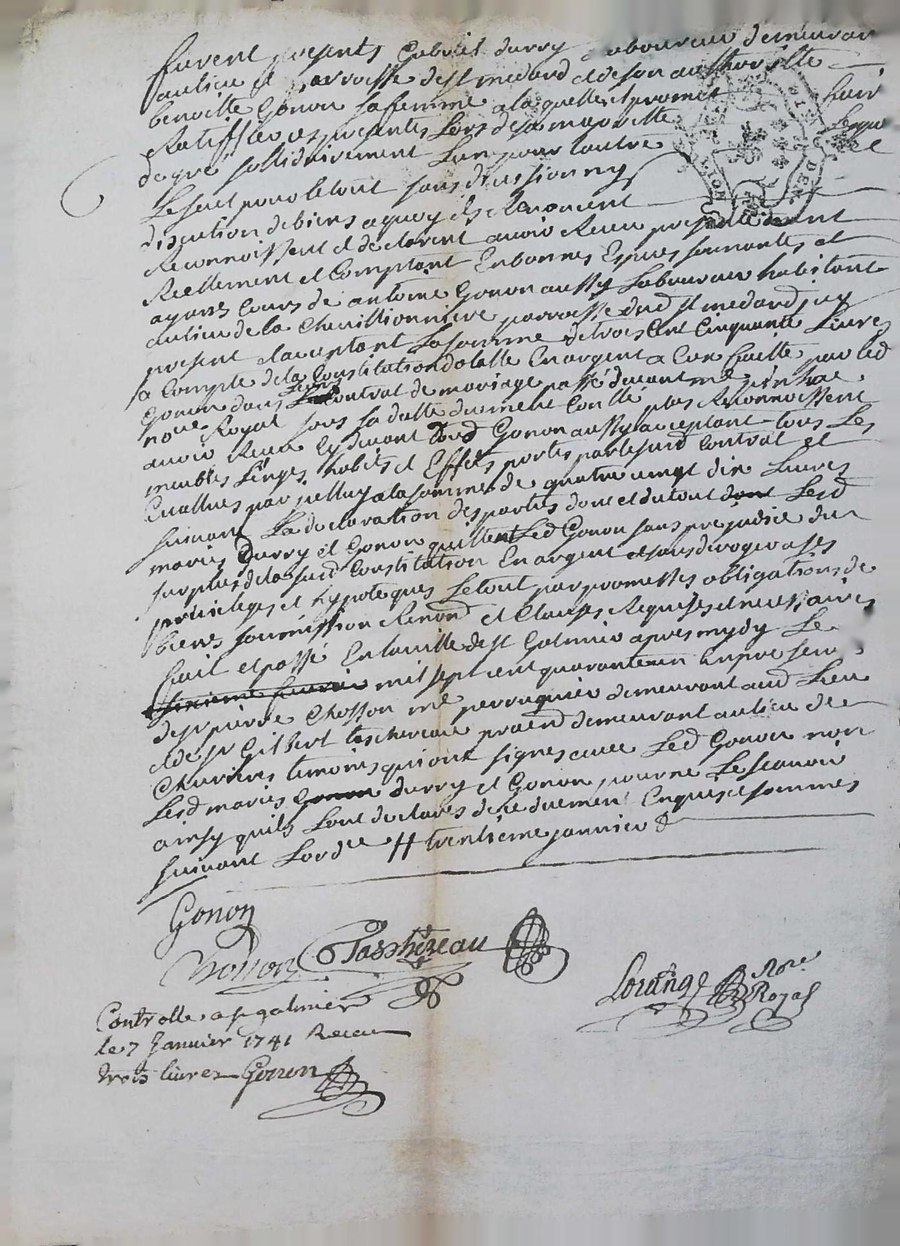 furent presents Gabriel durry laboureur demeurant
au lieu et parroisse de st medard et de son authorité
benoitte Gonon sa femme a laquelle il promet faire
Ratiffier ces presentes Lors de sa majorité Lesque
de gré sollidairement Lun pour lautre
Le seul pour le tout sans division ny
discution de biens a quoy ils Renoncent
Reconnoissent et declarent avoir Receu presentement
Reellement et Comptant En bonnes Espèces sonnantes et
ayant Cours de antoine Gonon aussy Laboureur habitant
au lieu de la Chevillionniere parroisse dud st medard icy
present et acceptant La somme de trois Cent Cinquante Livres
a Compte de la Constitution dotalle En argent a Elle faitte par led
Gonon dans leur Contrat de mariage passé devant me
nore Royal sous sa datte duement Conllé plus Reconnoissent
avoir Receu Cy devant dud Gonon aussy acceptant tous Les
meubles Linges habits et Effets portés par led Contrat et
Evallués par jcelluy a la somme de quatre vingt dix Livres
suivant La declaration des parties dont et du tout Lesd
mariés durry et Gonon quittent Led Gonon sans prejudice du
surplus de la susd Constitution En argent et sans deroger a ses
privileges et hypoteques Le tout par promesses obligations de
biens soumission Renond et Clauses Requises et necessaires
fait et passé En la ville de st Galmier apres mydy Le
mil sept cent quarante un En presence
de sr pierre Chosson me perruquier demeurant aud Lieu
et de sr Gilbert taschereau praend demeurant au lieu de
Chevrieres temoins qui ont signés avec Led Gonon non
Lesd mariés Gonon durry et Gonon pour ne Le scavoir
ainsy quils Lont declarés de ce duement Enquis et sommés
suivant Lordce // trentieme janvier
Gonon
Chosson Tasshereau
Lorange Nore
Royal
Controllé a st galmier
le 7 Janvier 1741 Receu
trois livres Gonon